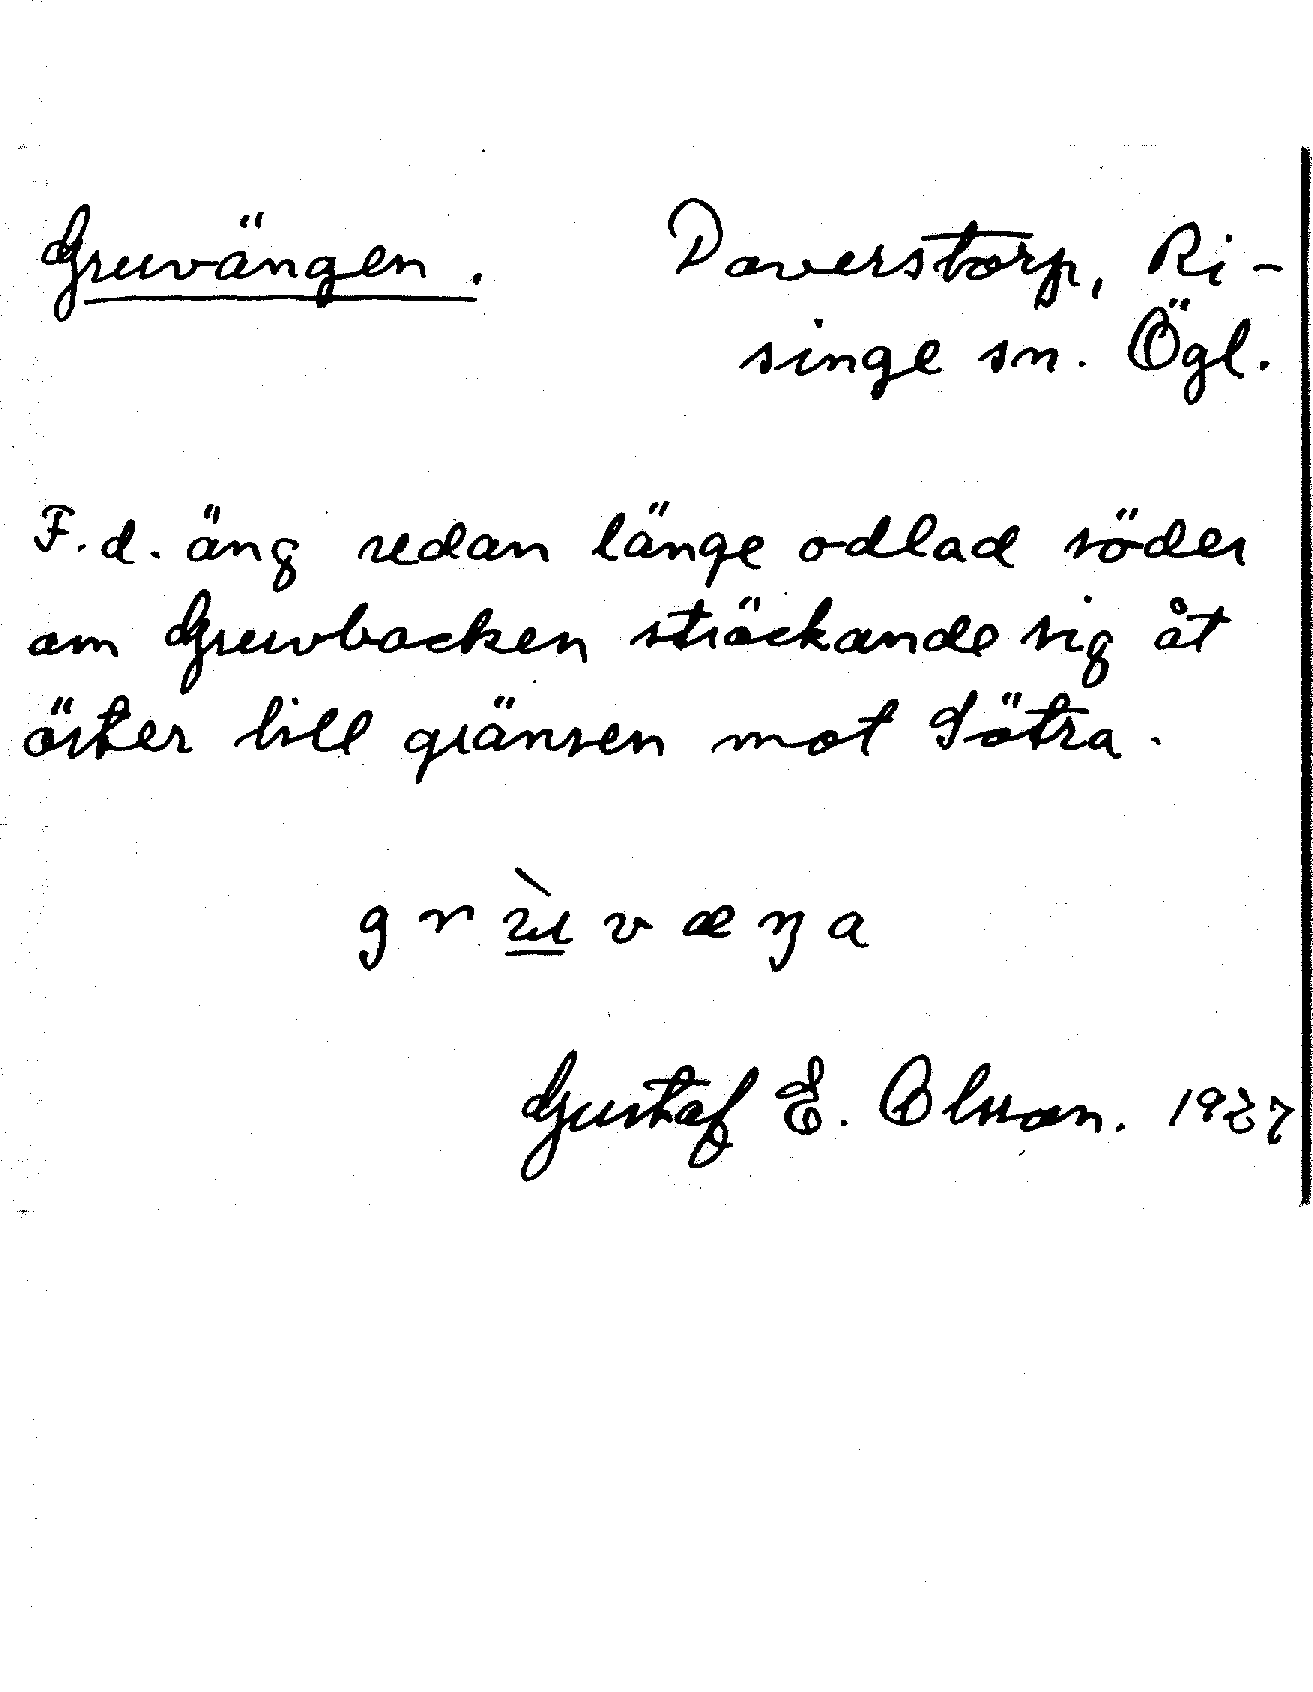 Gruvängen. Daverstorp, Ri-
singe sn. Ögl.
F. d. äng redan länge odlad söder
om Gruvbacken sträckande sig åt
öster till gränsen mot Sötra.
grùvæŋa
Gustaf E. Olsson. 1937